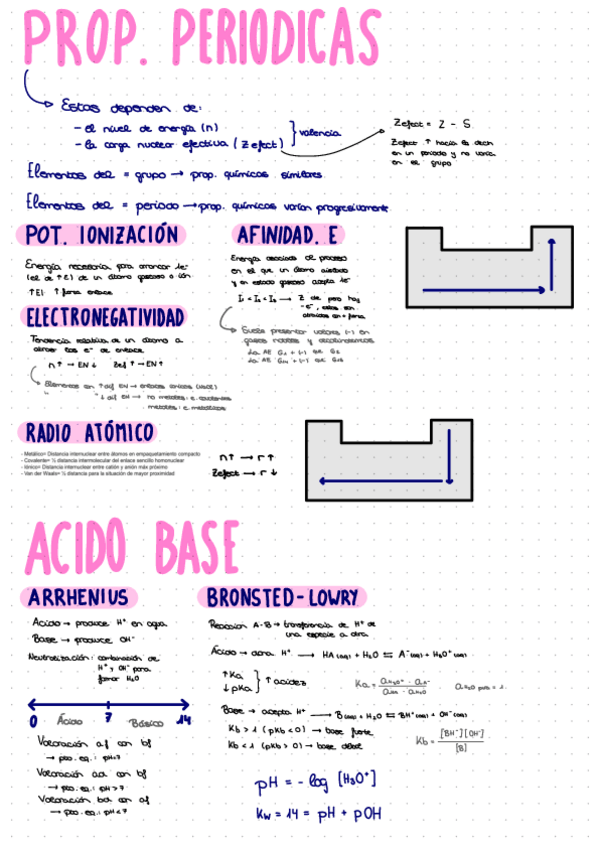 PROP. PERIODICAS
Estas dependen de:
- el nivel de energía (n)
- la carga nuclear efectiva (Zefect)
} valencia
Zefect = Z - S
Zefect ↑ hacia la dech
en un periodo y no varía
en el grupo
Elementos del = grupo → prop. químicas similares
Elementos del = periodo → prop. químicas varían progresivamente
POT. IONIZACIÓN
Energía necesaria para arrancar 1e-
(el de ↑E) de un átomo gaseoso o ión
↑EI ↑ fuerza enlace
AFINIDAD. E
Energía asociada al proceso
en el que un átomo aislado
y en estado gaseoso acepta 1e-
I₁ < I₂ < I₃ → Z de pero hay
-e-, están
atraídos con + fuerza
Suele presentar valores (-) en
gases nobles y alcalinotérreos
ELECTRONEGATIVIDAD
Tendencia relativa de un átomo a
atraer los e- de enlace.
n↑ → EN↓ Zef↑ → EN↑
Elementos con ↑dif EN → enlaces iónicos (NaCl)
" "↓dif EN → no metales: e. covalentes
metales: e. metálicos
RADIO ATÓMICO
- Metálico= Distancia internuclear entre átomos en empaquetamiento compacto
- Covalente= ½ distancia intermolecular del enlace sencillo homonuclear
- Iónico= Distancia internuclear entre catión y anión más próximo
- Van der Waals= ½ distancia para la situación de mayor proximidad
n↑ → r↑
Zefect → r↓
ACIDO BASE
ARRHENIUS
Ácido → produce H⁺ en agua
Base → produce OH⁻
Neutralización: combinación de
H⁺ y OH⁻ para
formar H₂O
0 Ácido 7 Básico 14
Valoración af con bf
→ pto. eq.: pH=7
Valoración ad con bf
→ pto. eq.: pH>7
Valoración bd con af
→ pto. eq.: pH<7
BRONSTED-LOWRY
Reaccion A-B → transferencia de H⁺ de
una especie a otra
Ácido → dona H⁺ → HA(aq) + H₂O ⇌ A⁻(aq) + H₃O⁺(aq)
↑Ka
↓pKa
} ↑ acidez
Ka = aH₃O⁺ · aA⁻ / aHA · aH₂O
aH₂O pura = 1.
Base → acepta H⁺ → B(aq) + H₂O ⇌ BH⁺(aq) + OH⁻(aq)
Kb > 1 (pKb < 0) → base fuerte
Kb < 1 (pKb > 0) → base débil
Kb = [BH⁺][OH⁻] / [B]
pH = - log [H₃O⁺]
Kw = 14 = pH + pOH